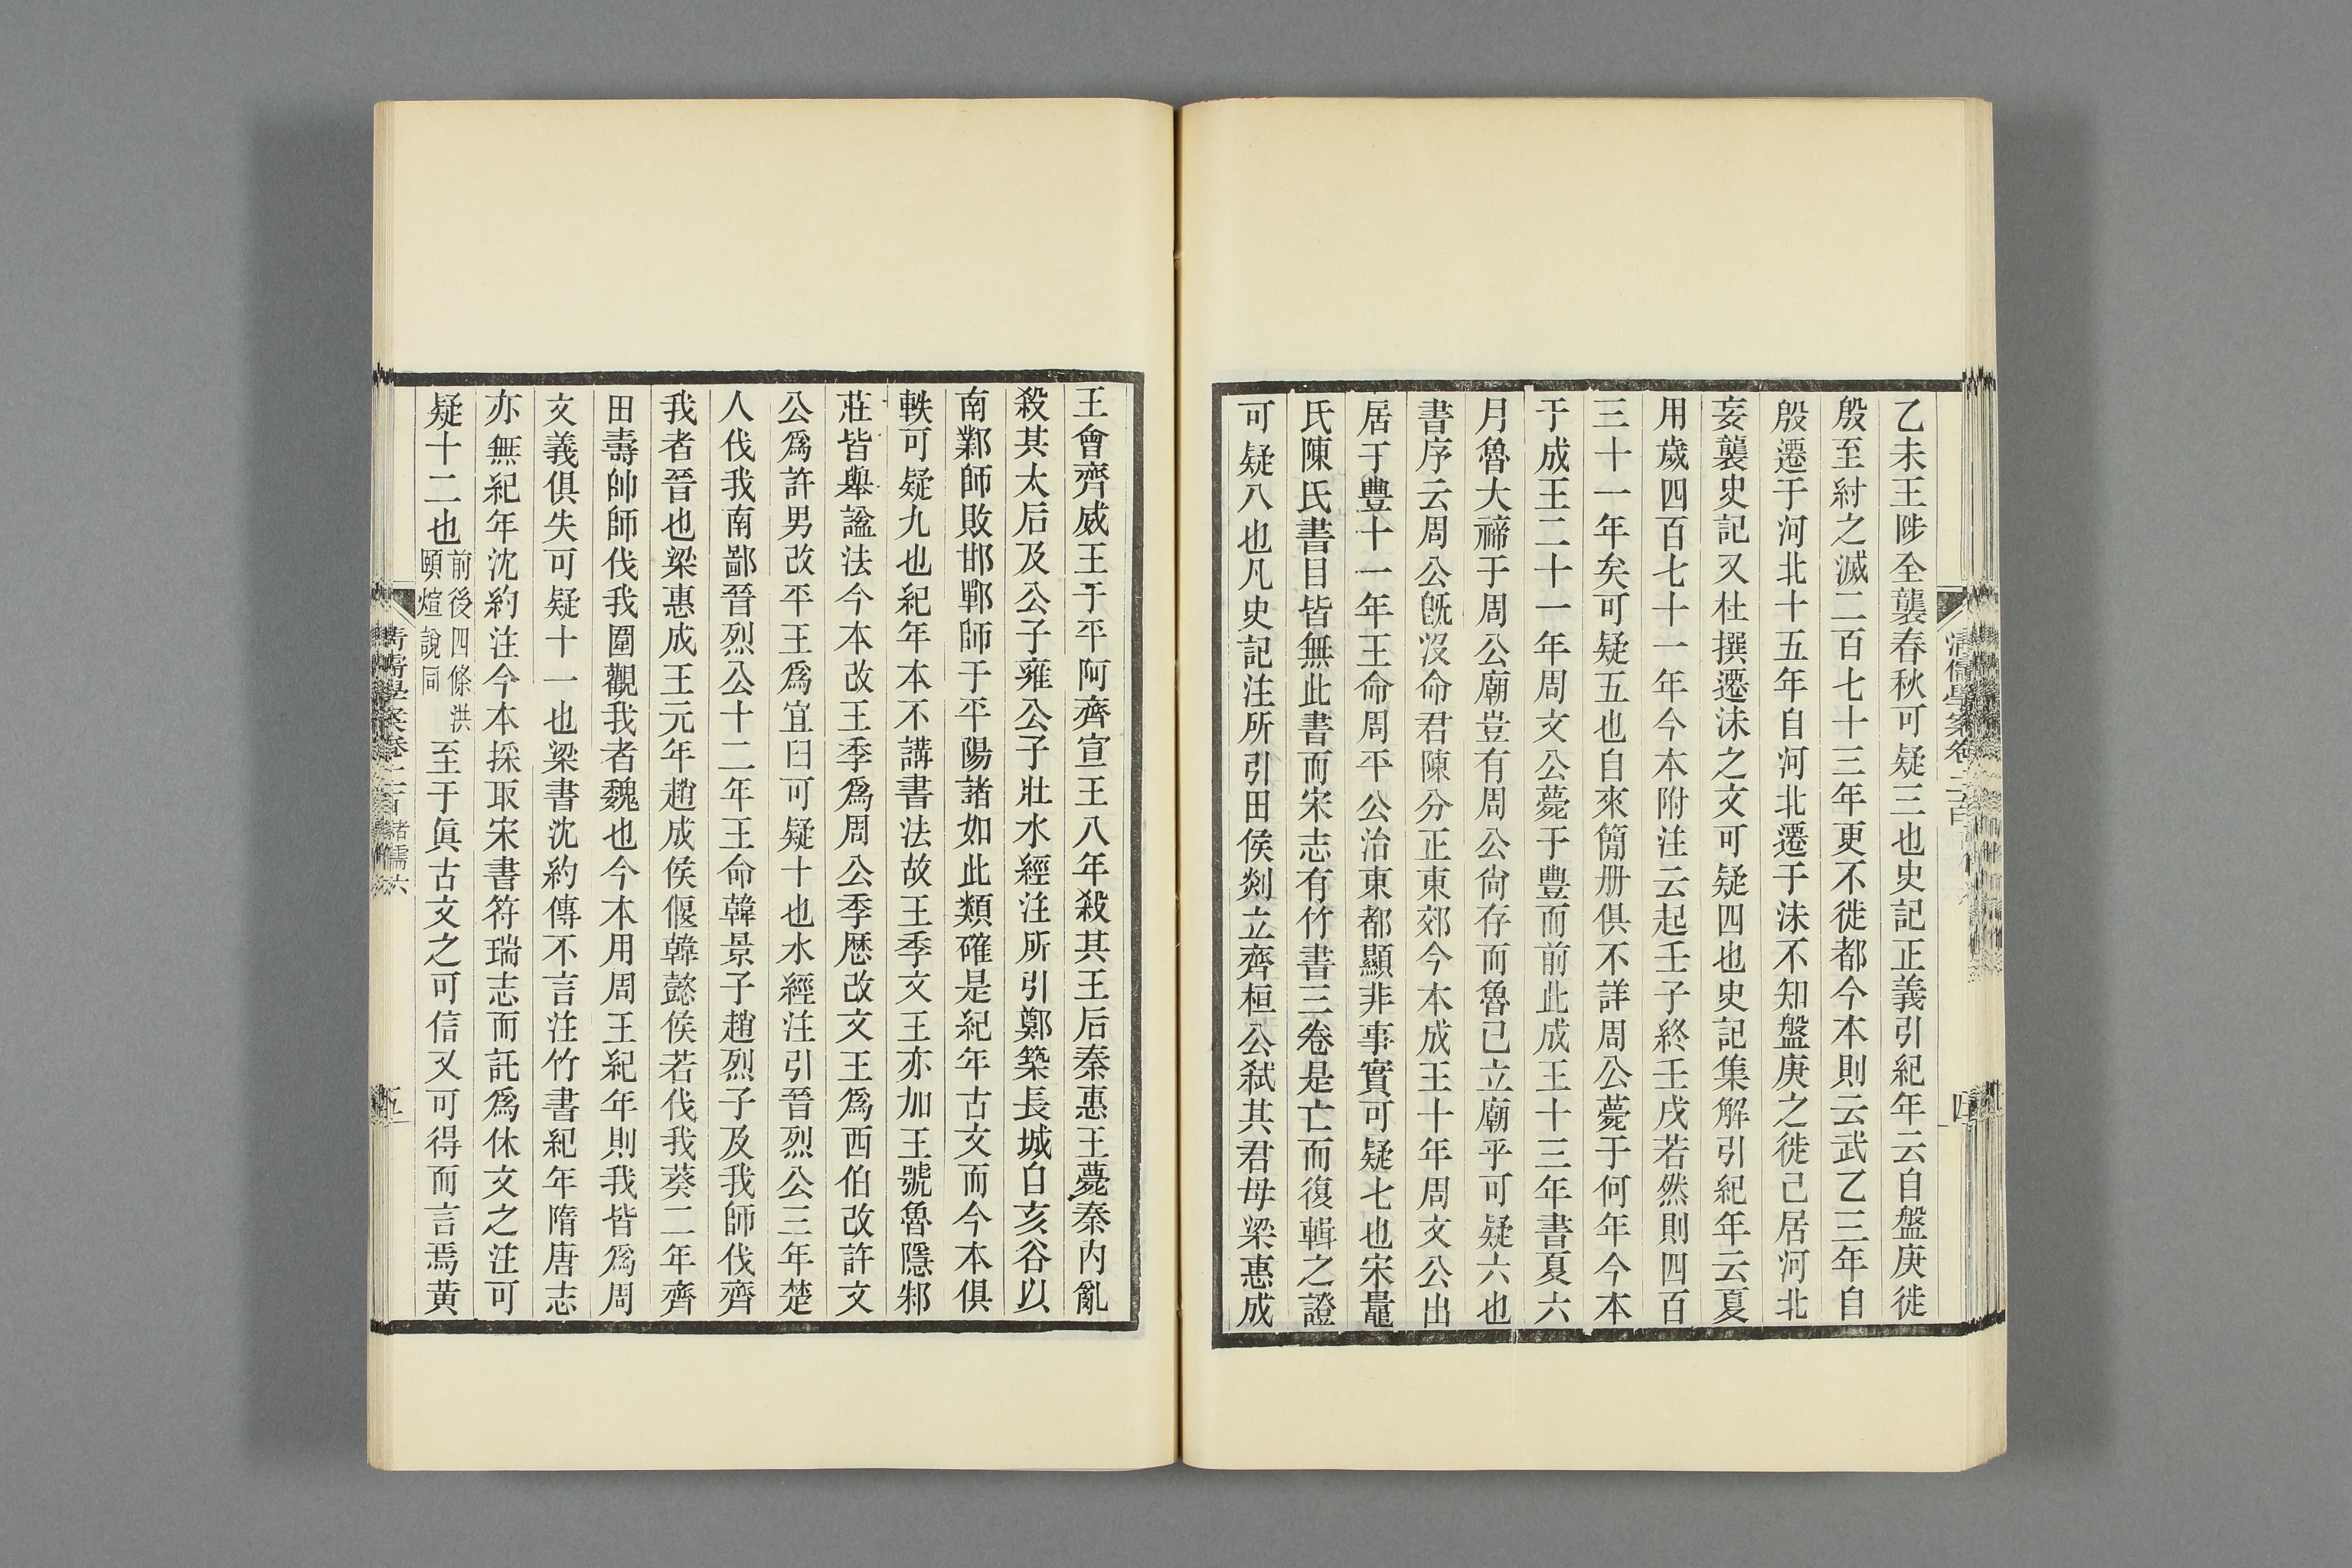 乙未王陟全襲春秋可疑三也史記正義引紀年云自盤庚徙
殷至紂之滅二百七十三年更不徙都今本則云武乙三年自
殷遷于河北十五年自河北遷于沬不知盤庚之徙已居河北
妄襲史記又杜撰遷沬之文可疑四也史記集解引紀年云夏
用歲四百七十一年今本附注云起壬子終壬戌若然則四百
三十一年矣可疑五也自來簡册俱不詳周公薨于何年今本
于成王二十一年周文公薨于豐而前此成王十三年書夏六
月魯大禘于周公廟豈有周公尙存而魯已立廟乎可疑六也
書序云周公旣沒命君陳分正東郊今本成王十年周文公出
居于豐十一年王命周平公治東都顯非事實可疑七也宋鼂
氏陳氏書目皆無此書而宋志有竹書三卷是亡而復輯之證
可疑八也凡史記注所引田侯剡立齊桓公弑其君母梁惠成
王會齊威王于平阿齊宣王八年殺其王后秦惠王薨秦内亂
殺其太后及公子雍公子壯水經注所引鄭築長城自亥谷以
南鄴師敗邯鄲師于平陽諸如此類確是紀年古文而今本俱
軼可疑九也紀年本不講書法故王季文王亦加王號魯隱邾
莊皆舉諡法今本改王季爲周公季歷改文王爲西伯改許文
公爲許男改平王爲宜臼可疑十也水經注引晉烈公三年楚
人伐我南鄙晉烈公十二年王命韓景子趙烈子及我師伐齊
我者晉也梁惠成王元年趙成侯偃韓懿侯若伐我葵二年齊
田壽帥師伐我圍觀我者魏也今本用周王紀年則我皆爲周
文義俱失可疑十一也梁書沈約傳不言注竹書紀年隋唐志
亦無紀年沈約注今本採取宋書符瑞志而託爲休文之注可
疑十二也前後四條洪頤煊說同至于眞古文之可信又可得而言焉黃
清儒學案卷二百 諸儒六